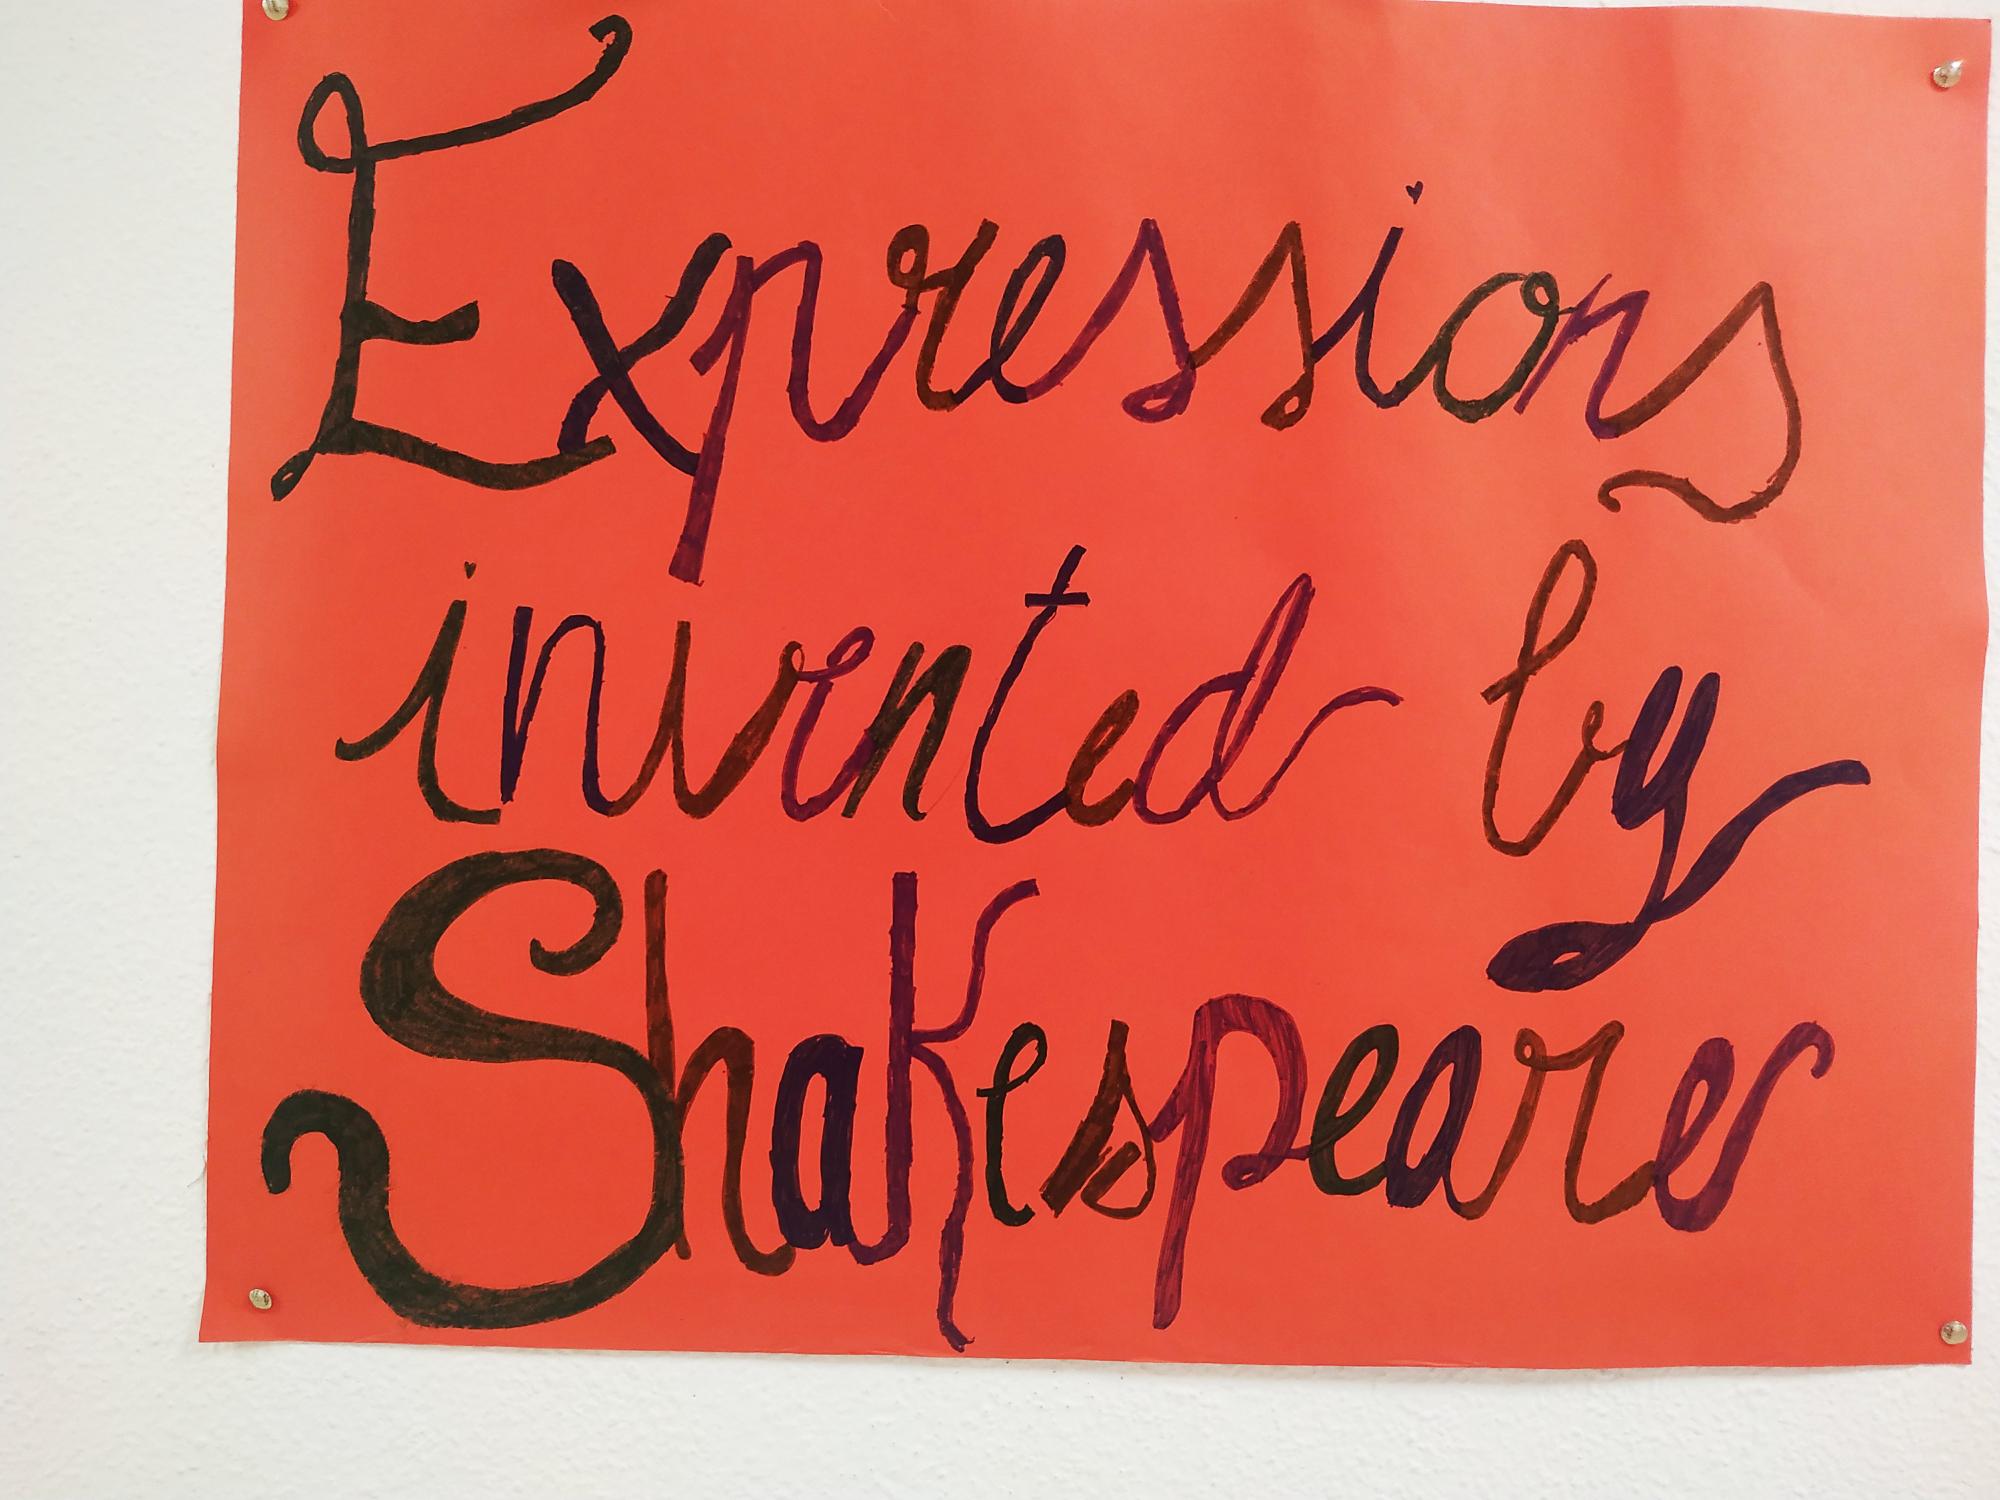 Expressions
invented by
Shakespeare